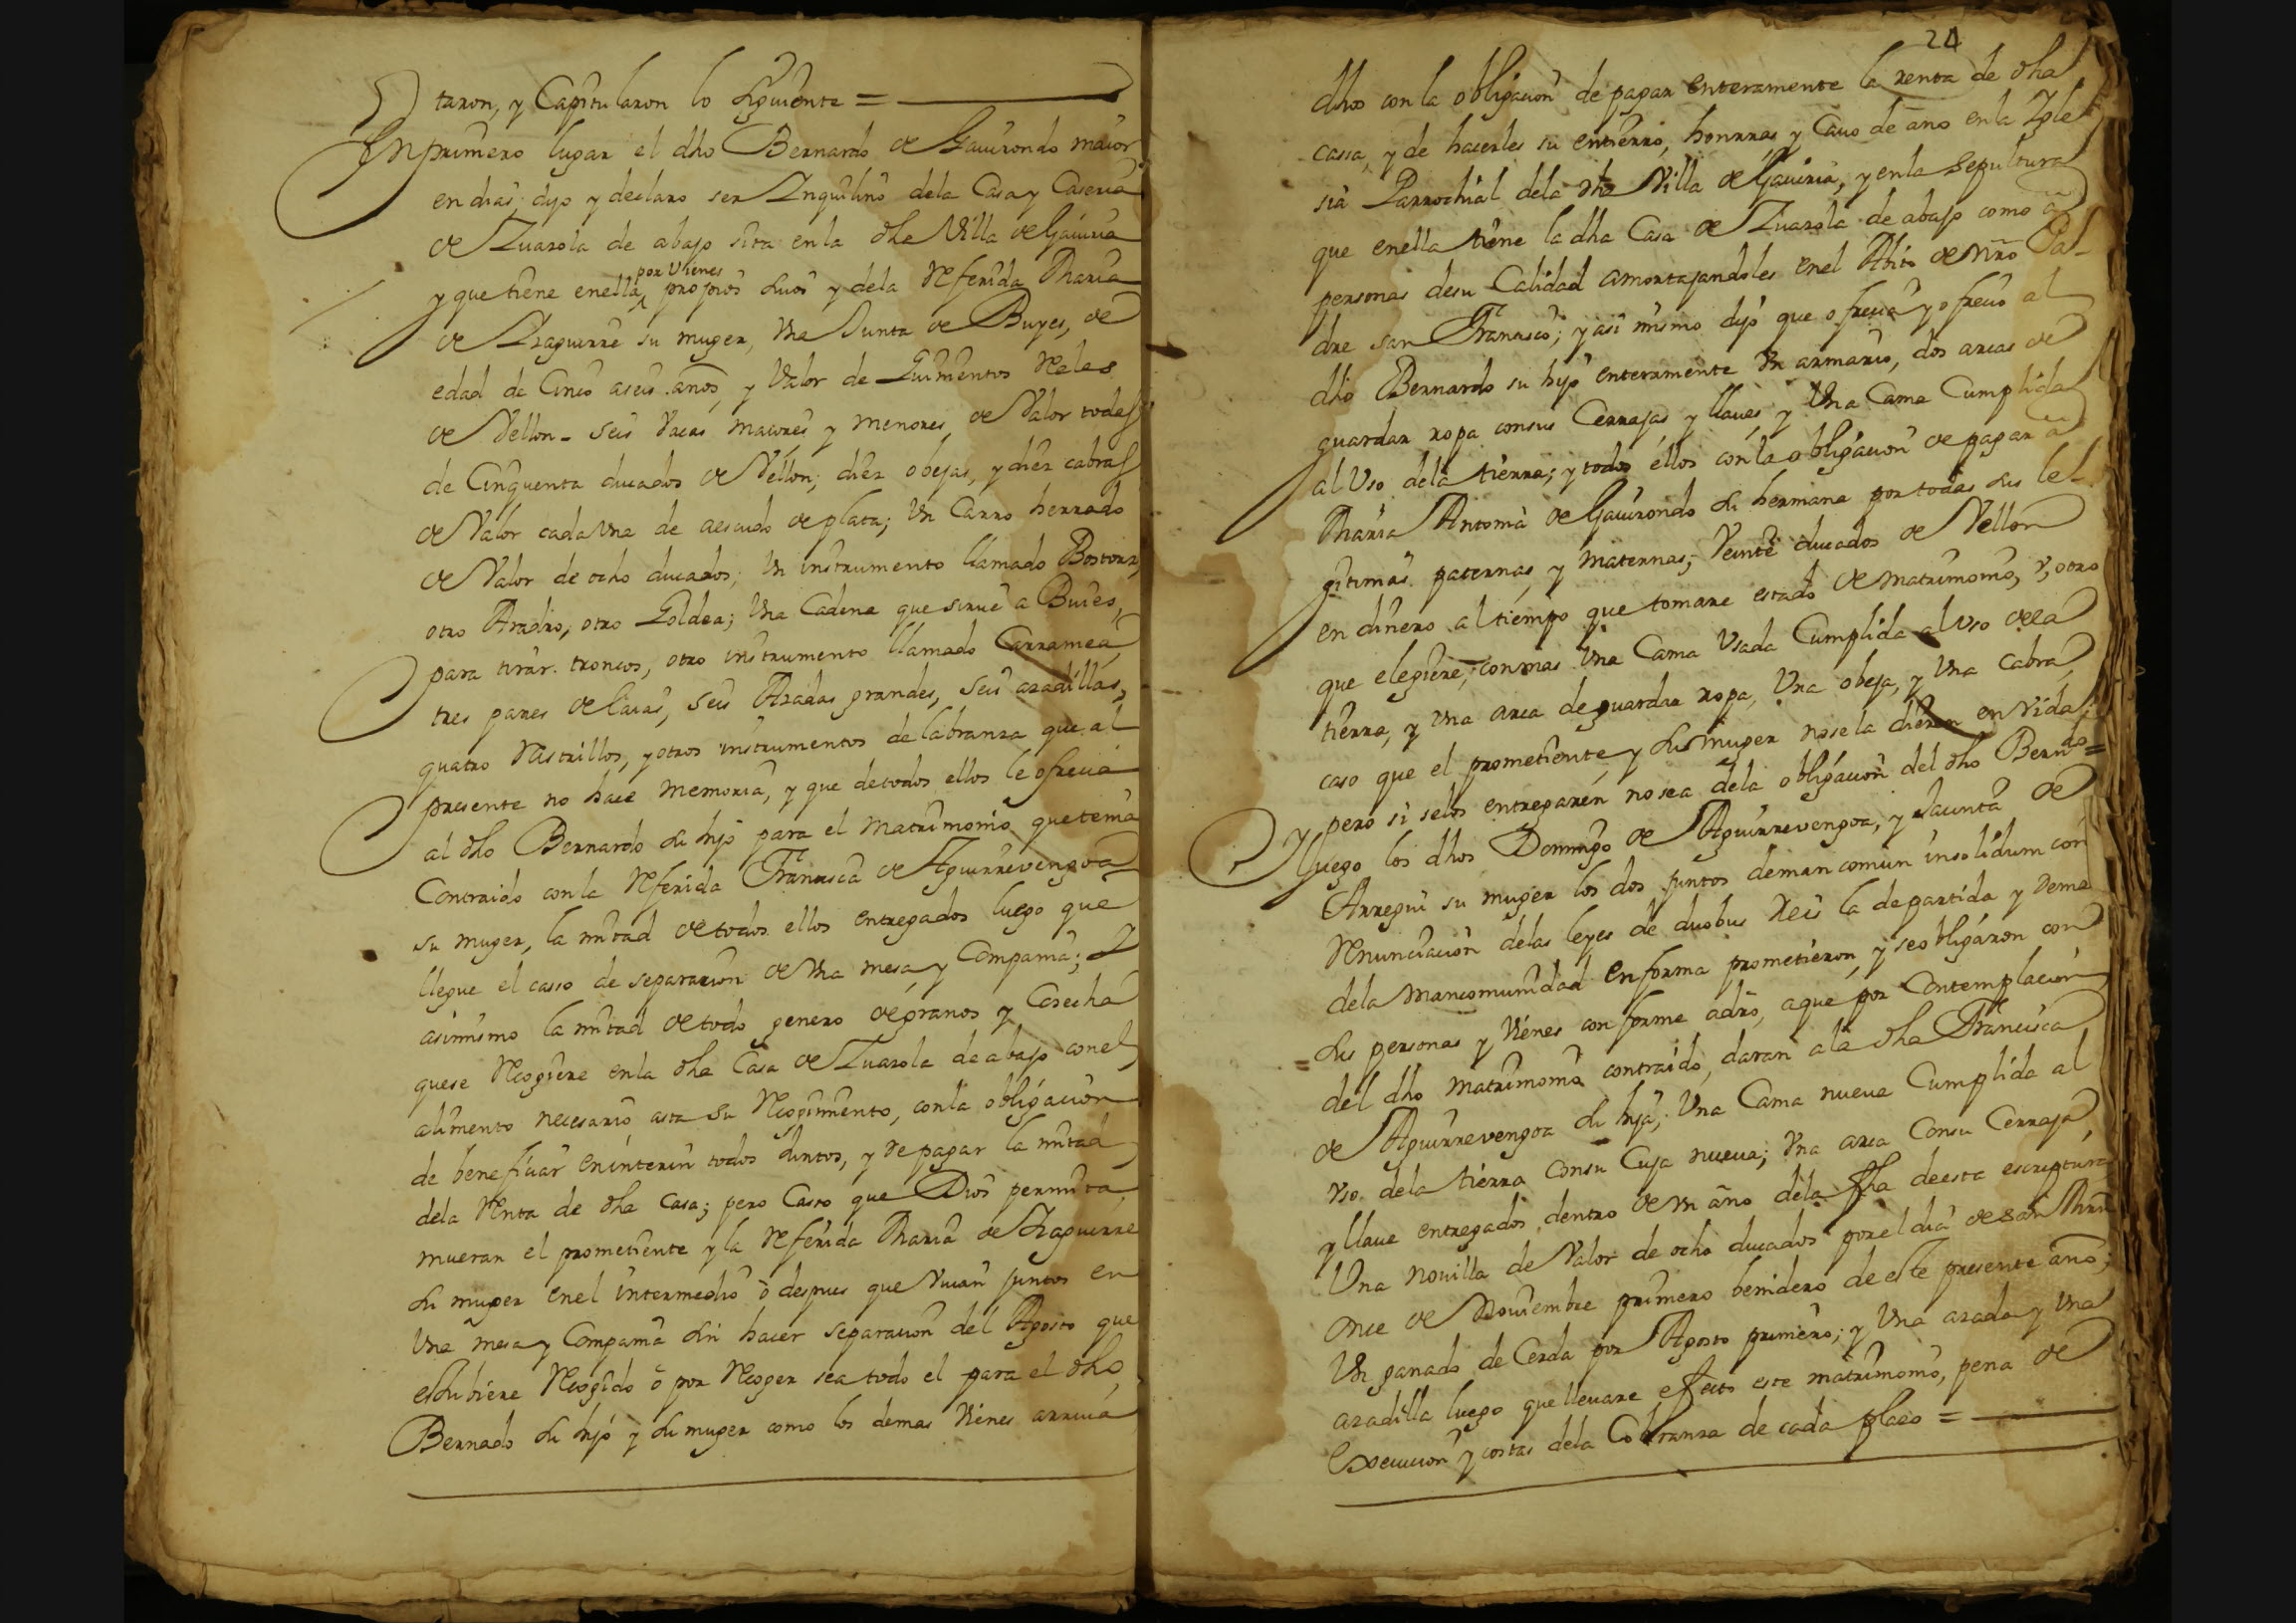 taron, y Capitularon lo siguiente =
Inprimero lugar el dho Bernardo de Gauirondo maior
en dias, dijo y declaro ser Inquilino dela Casa y Caseria
de Zuarola de abajo sita en la dha Villa de Gauiria
y que tiene enella por Vienes propios suos y dela Referida Maria
de Izaguirre su muger, Vna Junta de Buyes, de
edad de Cinco aseis años, y Valor de Quinientos Reales
de Vellon - seis Vacas maiores y menores, de Valor todas
de Cinquenta ducados de Vellon; diez obejas, y diez cabras
de Valor cada Vna de aescudo de plata; Vn Carro herrado
de Valor de ocho ducados; Vn instrumento llamado Bostorz,
otro Aradro, otro Goldea; Vna Cadena que sirue a Buies,
para tirar troncos, otro instrumento llamado Carramea,
tres pares de laias, seis Azadas grandes, seis azadillas,
quatro Rastrillos, y otros instrumentos de labranza que al
presente no hace memoria, y que detodos ellos le ofrecia
al dho Bernardo su hijo para el Matrimonio que tenia
Contraido con la Referida Francisca de Aguirrevengoa
su muger, la mitad de todos ellos entregados luego que
llegue el casso de separazion de Vna mesa y Compania; Y
asimismo la mitad de todo genero de granos y Cosecha
quese Recogiere enla dha Casa de Zuarola de abajo conel
alimento necesario asta su Recogimiento, conla obligacion
de beneficiar eninterin todos Juntos, y de pagar la mitad
dela Renta de dha Casa; pero Casso que Dios permita,
mueran el prometiente y la Referida Maria de Izaguirre
su muger enel intermedio ò despues que Viuan juntos en
Vna mesa y Compania sin hacer separacion del Agosto que
estubiere Recogido ò por Recoger sea todo el para el dho
Bernado su hijo y su muger como los demas Vienes arriua
24
dhos con la obligacion de pagar enteramente la renta de dha
cassa, y de hacerles su entierro, honrras, y Cauo de año en la Igle
sia Parrochial dela dha Villa de Gauiria, y enla sepultura
que enella tiene la dha Casa de Zuarola de abajo como a
personas desu Calidad amortajandoles enel Abito de nro Pa-
dre san Francisco; y asi mismo dijo que ofrecia y ofrecio al
dho Bernardo su hijo enteramente Vn armario, dos arcas de
guardar ropa consus Cerrajas y llaues, y Vna Cama Cumplida
al Vso dela tierra; y todos ellos con la obligacion de pagar a
Maria Antonia de Gauirondo su hermana por todas sus le-
gitimas paternas, y maternas, Veinte ducados de Vellon
en dinero al tiempo que tomare estado de matrimonio, ù, otro
que eleguiere, con mas Vna Cama Vsada Cumplida al vso dela
tierra, y Vna arca de guardar ropa, Vna obeja, y Vna cabra,
caso que el prometiente y su muger nose la dieren en vida;
pero si selos entregaren no sea dela obligacion del dho Berndo =
Y luego los dhos Domingo de Aguirrevengoa, y Jacinta de
Arregui su muger los dos juntos deman comun insolidum con
Renunciacion delas leyes de duobus Reis la departida y dema
dela mancomunidad en forma prometieron, y seobligaron con
sus personas y Vienes conforme adro, aque por Contemplacion
del dho matrimonio contraido, daran ala dha Francisca
de Aguirrevengoa su hija, Vna Cama nueua Cumplida al
vso dela tierra consu Cuja nueua; Vna arca Consu Cerraja
y llaue entregados dentro de vn año dela fha deesta escriptura
Vna nouilla de Valor de ocho ducados por el dia de san Mrn
once de Nouiembre primero benidero de este presente año;
Vn ganado de Cerda por Agosto primero; y Vna azada y Vna
azadilla luego que lleuare efecto este matrimonio, pena de
Execucion y costas dela Cobranza de cada plazo =